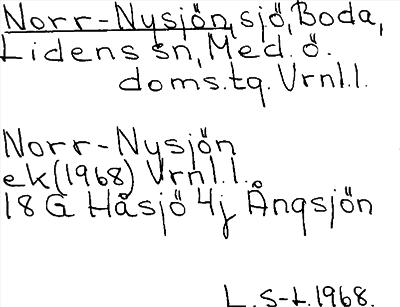 Norr-Nysjön, sjö, Boda,
Lidens sn, Med. ö.
doms.tg. Vrnl.l.
Norr-Nysjön
ek(1968) Vrnl.l.
18 G Håsjö 4j Ångsjön
L. S-L. 1968.